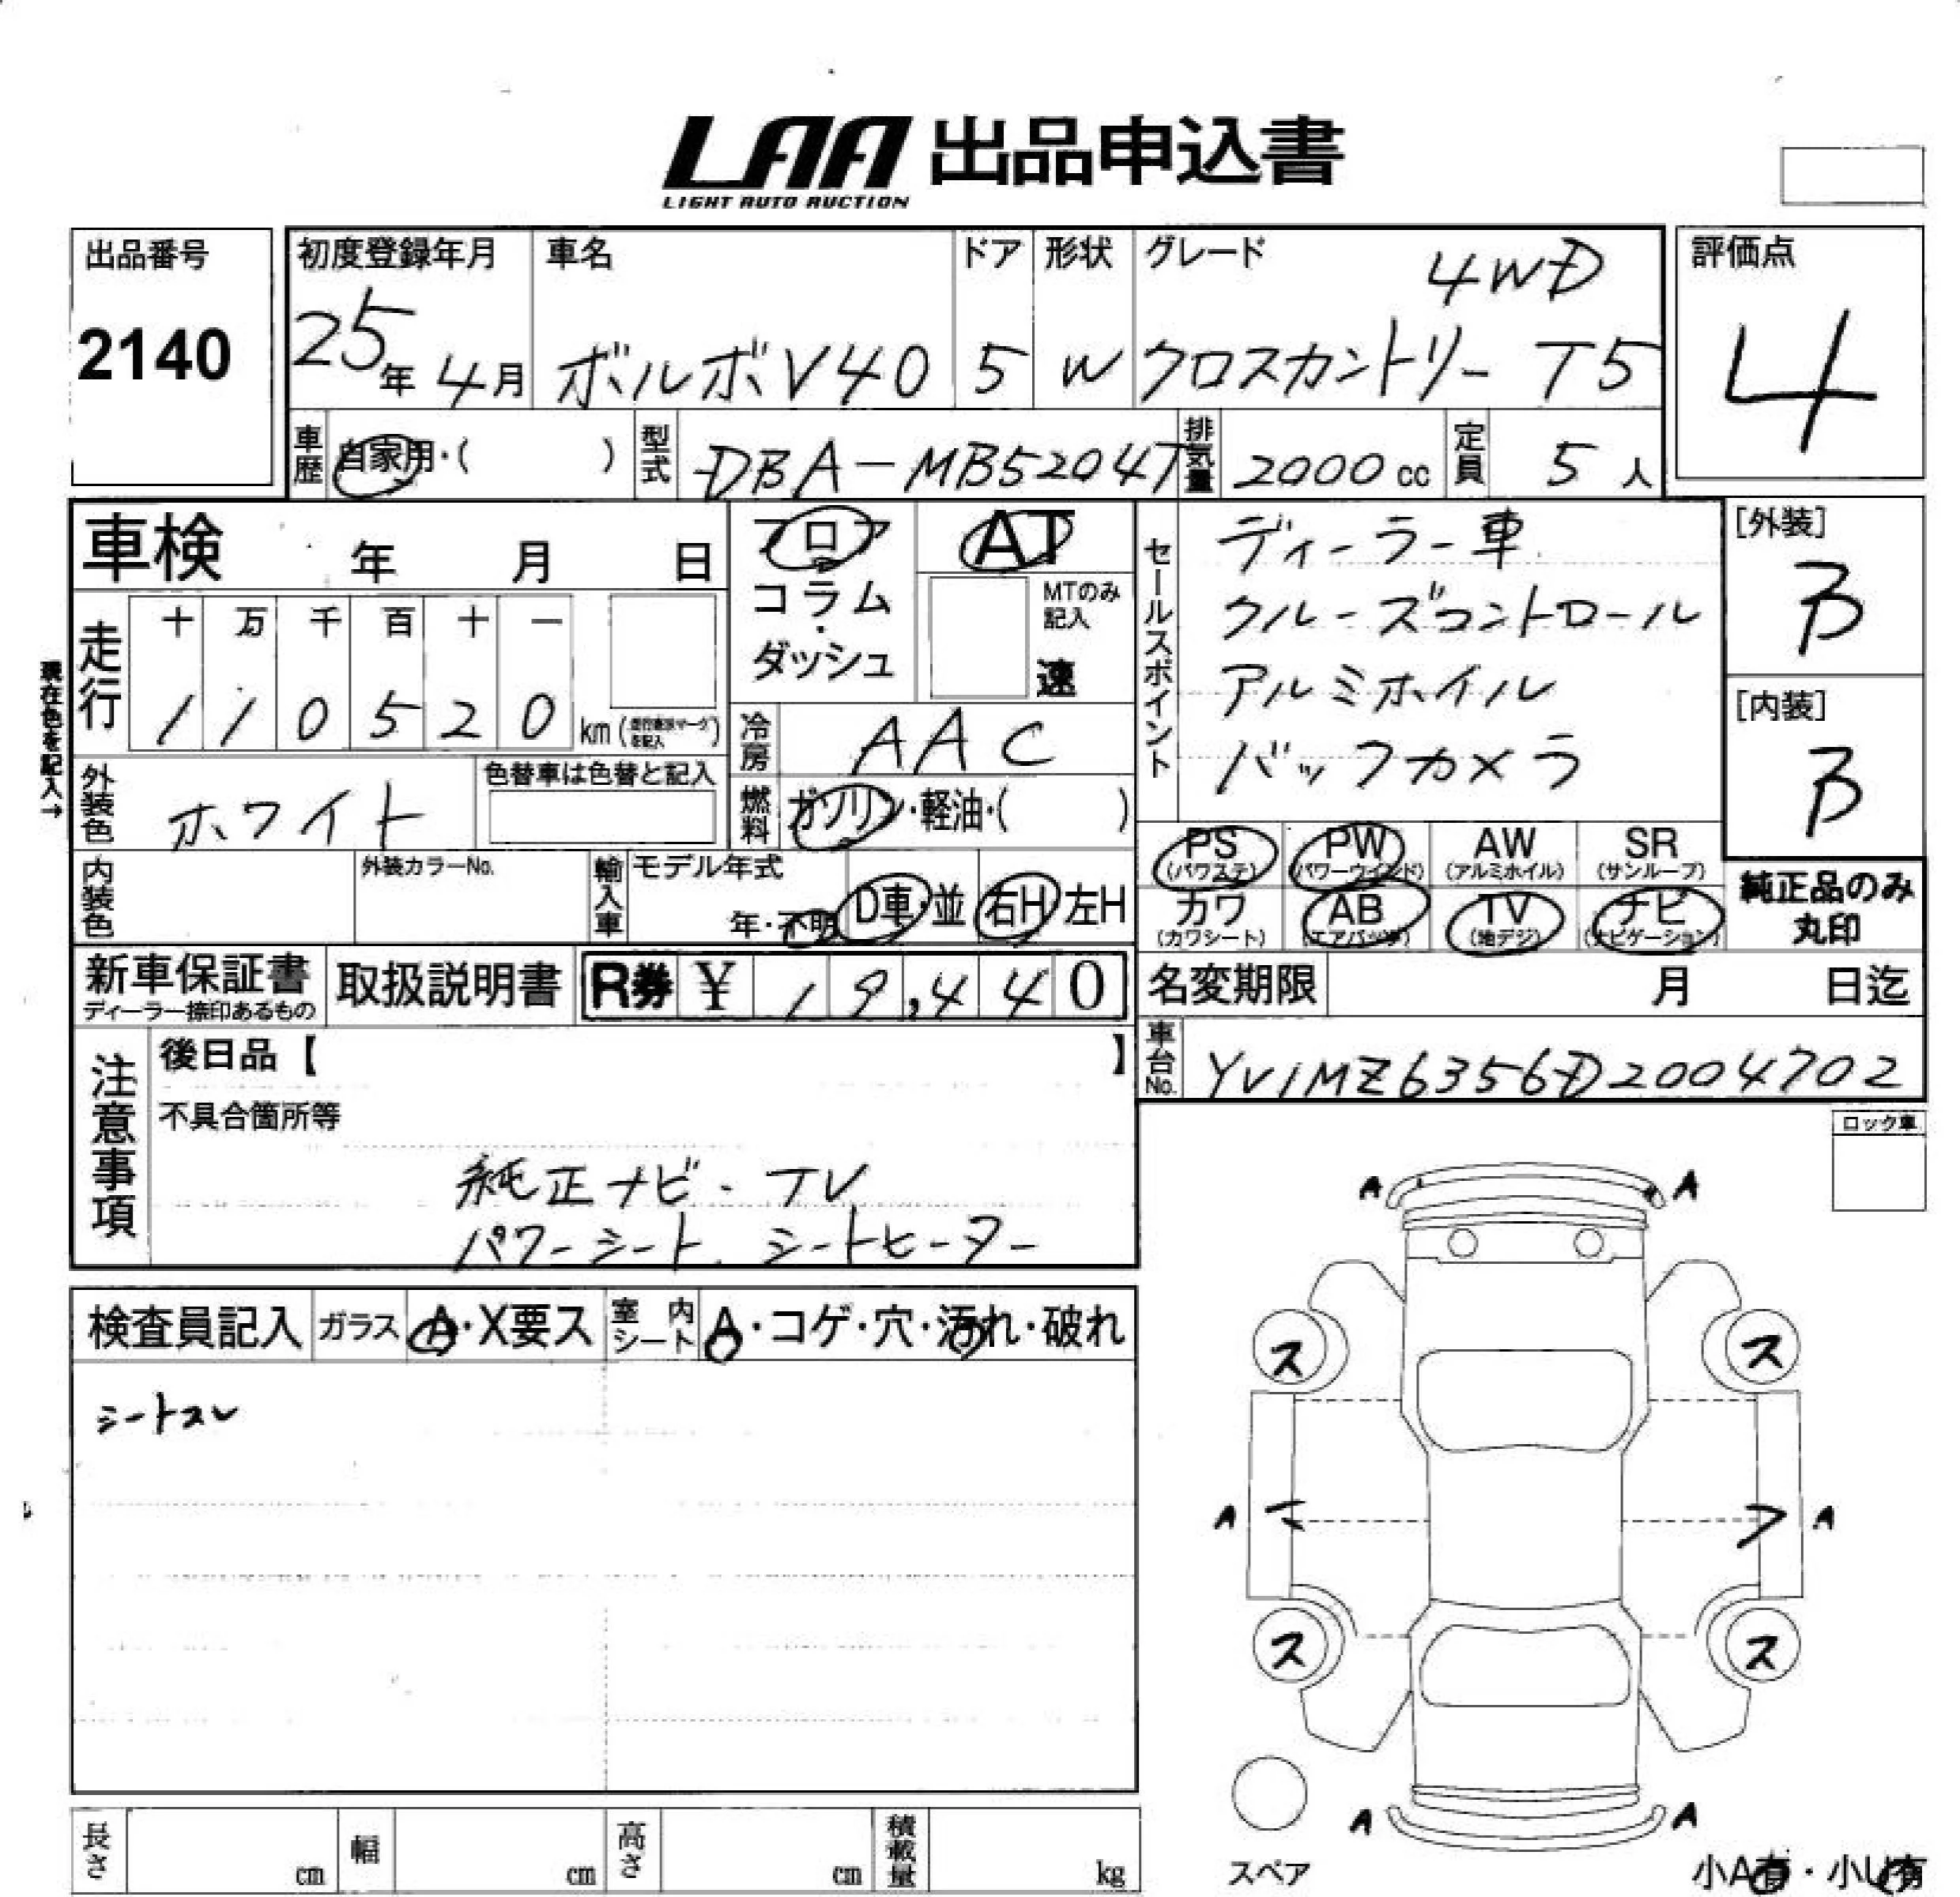 LAA 出品申込書
LIGHT AUTO AUCTION
出品番号
2140
初度登録年月
25年 4月
車名
ボルボV40
ドア
5
形状
W
グレード
4WD
クロスカントリー T5
評価点
4
車歴 自家用・( )
型式 DBA-MB5204T
排気量 2000 cc
定員 5 人
車検 年 月 日
フロア
コラム・
ダッシュ
AT
MTのみ
記入
速
セールスポイント
ディーラー車
クルーズコントロール
アルミホイル
バックカメラ
[外装]
B
[内装]
B
現在色を記入→
走行
十 万 千 百 十 一
1 1 0 5 2 0 km
冷房 AAC
外装色 ホワイト
色替車は色替と記入
燃料 ガソリン・軽油・( )
PS (パワステ)
PW (パワーウインド)
AW (アルミホイル)
SR (サンルーフ)
カワ (カワシート)
AB (エアバック)
TV (地デジ)
ナビ (ナビゲーション)
純正品のみ
丸印
内装色
外装カラーNo.
輸入車
モデル年式
年・不明
D車・並
右H 左H
新車保証書
ディーラー捺印あるもの
取扱説明書
R券 ¥ 19,440
名変期限 月 日迄
車台No. YV1MZ6356D2004702
注意事項
後日品【 】
不具合箇所等
純正ナビ・TV
パワーシート、シートヒーター
ロック車
検査員記入
ガラス A・X要ス
室内シート A・コゲ・穴・汚れ・破れ
シートスレ
A A
ス ス
A A
ス ス
A A
スペア
小A有・小U有
長さ cm
幅 cm
高さ cm
積載量 kg